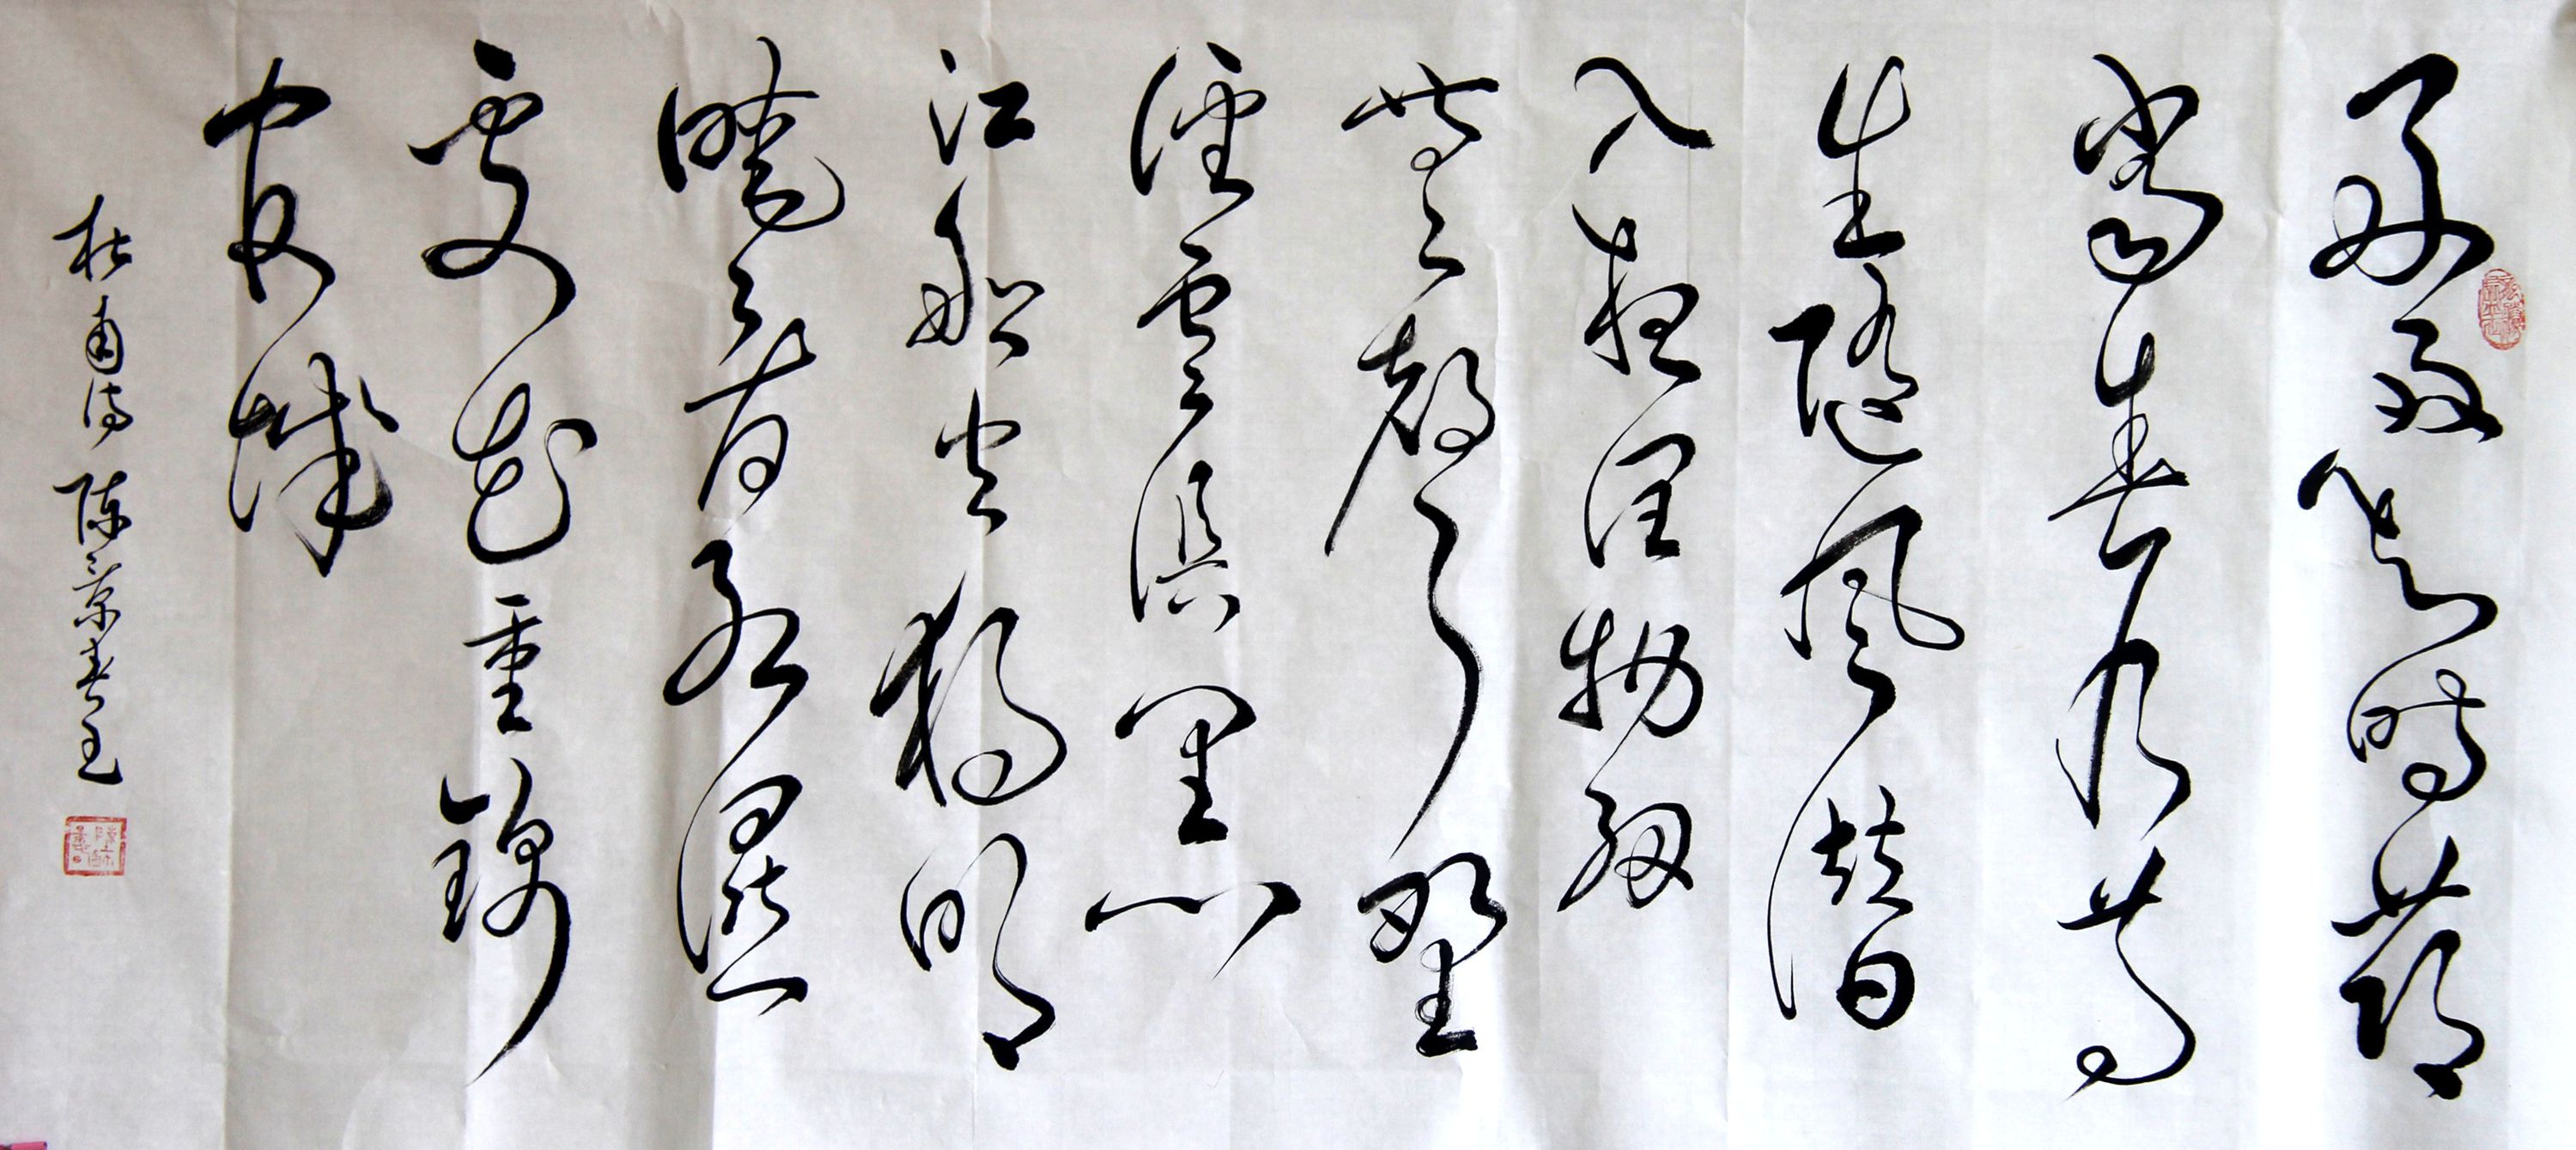 好雨知時節
當春乃發
生隨風潛
入夜潤物細
無聲野
徑雲俱黑
江船火獨明
曉看紅濕
處花重錦
官城
杜甫诗 陈景春